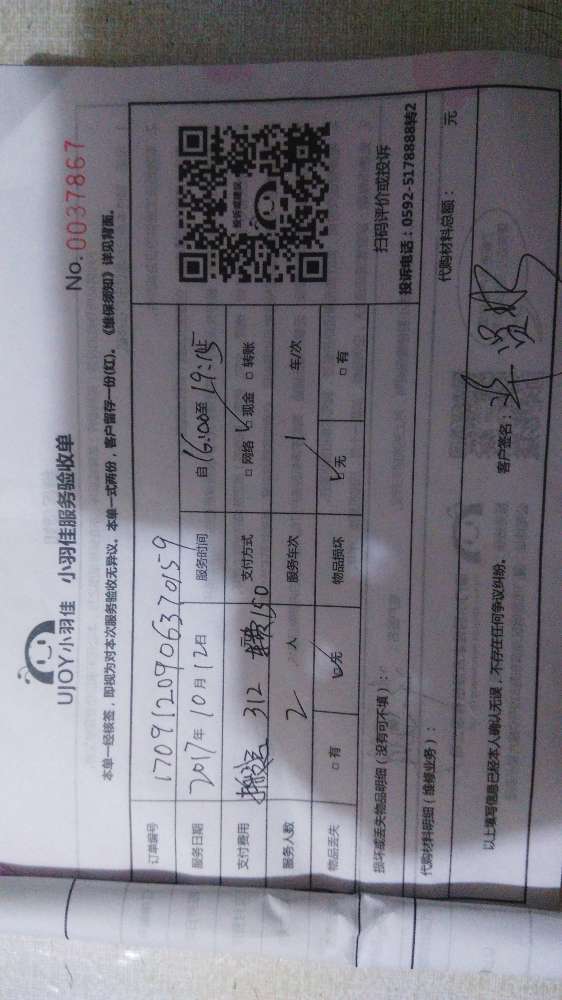 UJOY小羽佳 小羽佳服务验收单
No. 0037867
本单一经核签，即视为对本次服务验收无异议。本单一式两份，客户留存一份(红)。《维保须知》详见背面。
订单编号 1709120906370159
服务日期 2017年10月12日 服务时间 自16:00至19:15止
支付费用 搬运 312元 车费150 支付方式 □网络 ☑现金 □转账
服务人数 2人 服务车次 1 车/次
物品丢失 □有 ☑无 物品损坏 ☑无 □有
投诉或建议
扫码评价或投诉
投诉电话：0592-5178888转2
损坏或丢失物品明细（没有可不填）：
代购材料明细（维修业务）：
代购材料总额： 元
以上填写信息已经本人确认无误，不存在任何争议纠纷。
客户签名：